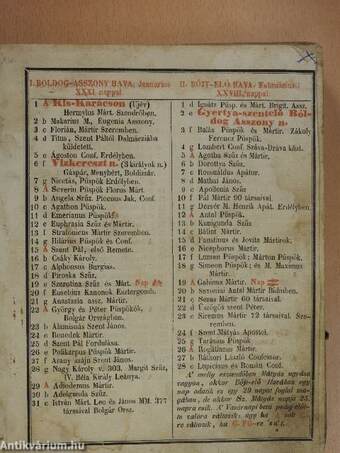 I. BOLDOG-ASSZONY HAVA, Januarius
XXXI nappal.
1 A Kis-Karácson (Ujév)
Hermylus Márt. Szendrőben.
2 b Makarius M., Eugenia Asszony.
3 c Florián, Mártir Szeremben.
4 d Titus, Szent Páltól Dalmácziába
küldetett.
5 e Agoston Conf. Erdélyben.
6 f Vizkereszt n. (3 királyok n.)
Gáspár, Menyhért, Boldizsár.
7 g Nicetás, Püspök Erdélyben.
8 A Severin Püspök Florus Márt.
9 b Angela Szűz.
10 c Agathon Püspök.
11 d Emerianus Püspök
12 e Euphrasia Szűz és Mártir.
13 f Stratonicus Mártir Szeremben.
14 g Hilárius Püspök és Conf.
15 A Szent Pál, első Remete.
16 b Csáky Károly.
17 c Alphonsus
18 d Piroska Szűz.
19 e Szerotina Szűz és Márt. Nap
20 f Eusebius Kanonok Esztergomb.
21 g Anastasia assz. Mártir.
22 A György és Péter Püspökök,
Bolgár Országban.
23 b Alamisnás Szent János
24 c Benedek Mártir.
25 d Szent Pál Fordulása.
26 e Polikárpus Püspök Mártir.
27 f Arany szájú Szent János
28 g Nagy Károly vi. 803. Margit Szűz,
IV. Béla Király Leánya.
29 A Adiodemus Mártir.
30 b Adelgunda Szűz.
31 c István Márt. Leo és János MM. 377
társaival Bolgár Orsz.
II. BÖJT-ELŐ HAVA, Februarius
XXVIII. nappal.
1 d Ignátz Püsp. és Márt. Brigit. Assz.
2 e Gyertya-szentelő Bol-
dog Asszony n.
3 f Balás Püspök és Mártir. Zákoly
Ferencz Püspök.
4 g Lombert Conf. Száva-Dráva közt.
5 A Agotha Szűz és Mártir.
6 b Dorottya Szűz.
7 c Romuáldus Apátur.
8 d Mathai János.
9 e Apollonia Szűz
10 f Pál Mártir 90 társaival.
11 g Dienér M. Henrik Apát. Erdélyben.
12 A Antal Püspök.
13 b Kunigunda Szűz
14 c Bálint Mártir.
15 d Faustinus és Jovita Mártirok.
16 e Nicephorus Mártir.
17 f Lumen Püspök; Márton Püspök.
18 g Simeon Püspök; és M. Maximus
Mártir.
19 A Gabinus Mártir. Nap
20 b Szeverini Antal Mártir Bidinben.
21 c Sezas Mártir 60 társaival.
22 d dolgot szent Péter.
23 e Sirenus Mártir 72 társaival. Szerem-
ben.
24 f Szent Mátyás Apostol.
25 g Tarásus Püspök
26 A Bogátianus Mártir.
27 b Bálinti László Confessor.
28 c Lupicinus és Román Conf.
A' mely esztendőben Mátyás ugrása
vagyon, akkor Böjt-elő Havában egy
nap adatik és egy 29 napot foglal ma-
gában, de akkor Sz. Mátyás napja 25.
napra esik. A' Vasárnapi betű pedig előre